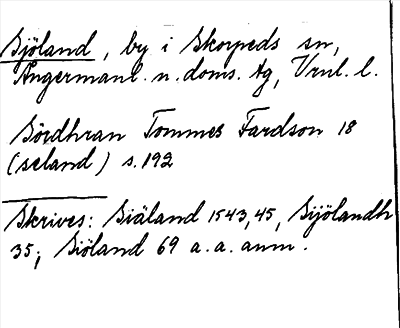 Sjöland, by i Skorpeds sn,
Ångermanl. n. doms. tg, Vnl. l.
Sördhran Tommes Fardson 18
(seland) s. 192
Skrives: Siäland 1543, 45, Sijölandh
35; Siöland 69 a. a. anm.